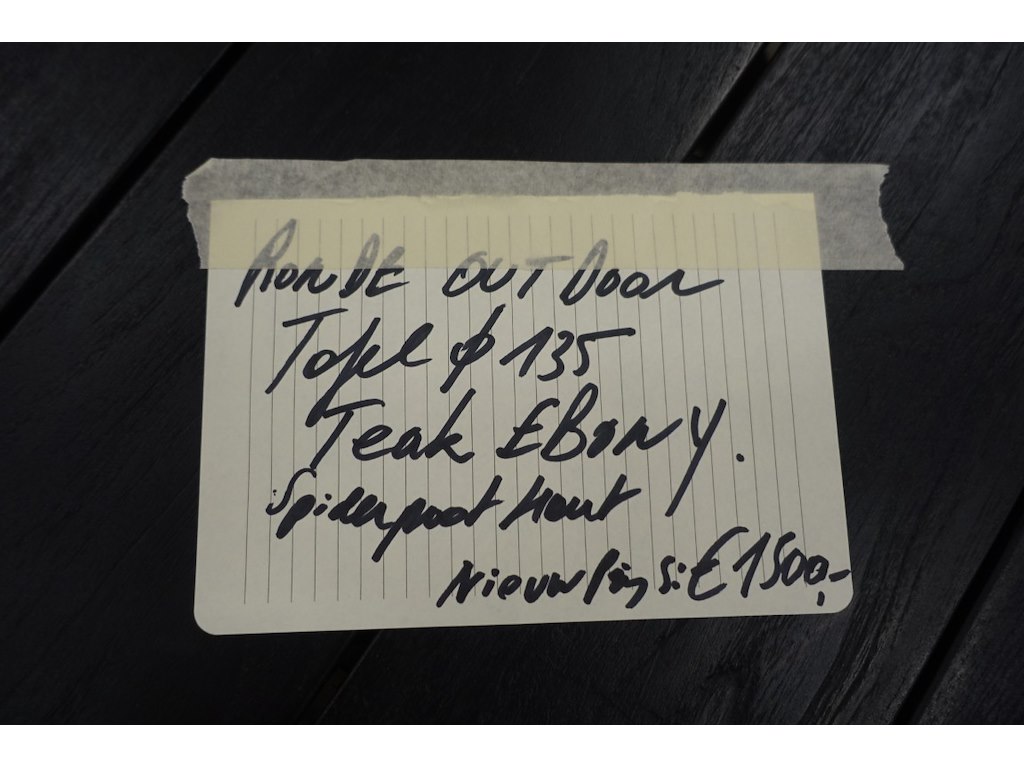 RONDE OUTDOOR
Tafel ø 135
Teak EBONY.
Spiderpoot Hout
Nieuwprijs: €1500,-